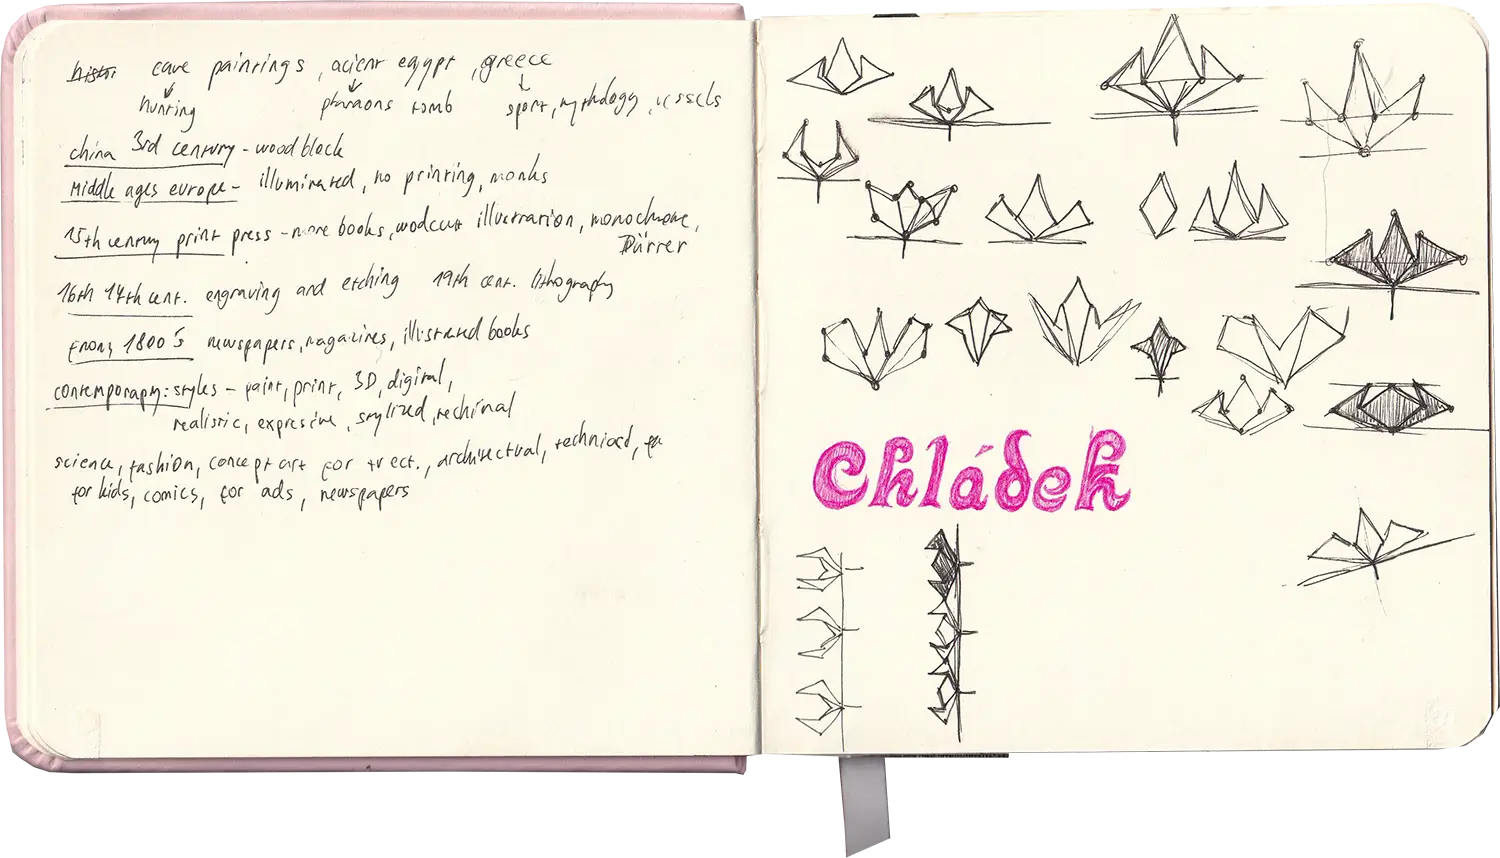 histor cave paintings, acient egypt, greece
hunting pharaons tomb sport, mythology, vessels
china 3rd century - wood block
Middle ages europe - illuminated, no printing, monks
15th century print press - more books, wodcut illustration, monochrome,
Dürrer
16th 17th cent. engraving and etching 19th cent. lithography
from 1800's newspapers, magazines, illustrated books
contemporary: styles - paint, print, 3D, digital,
realistic, expresive, stylized, technical
science, fashion, concept art for tv ect., architectual, technical,
for kids, comics, for ads, newspapers
Chládek